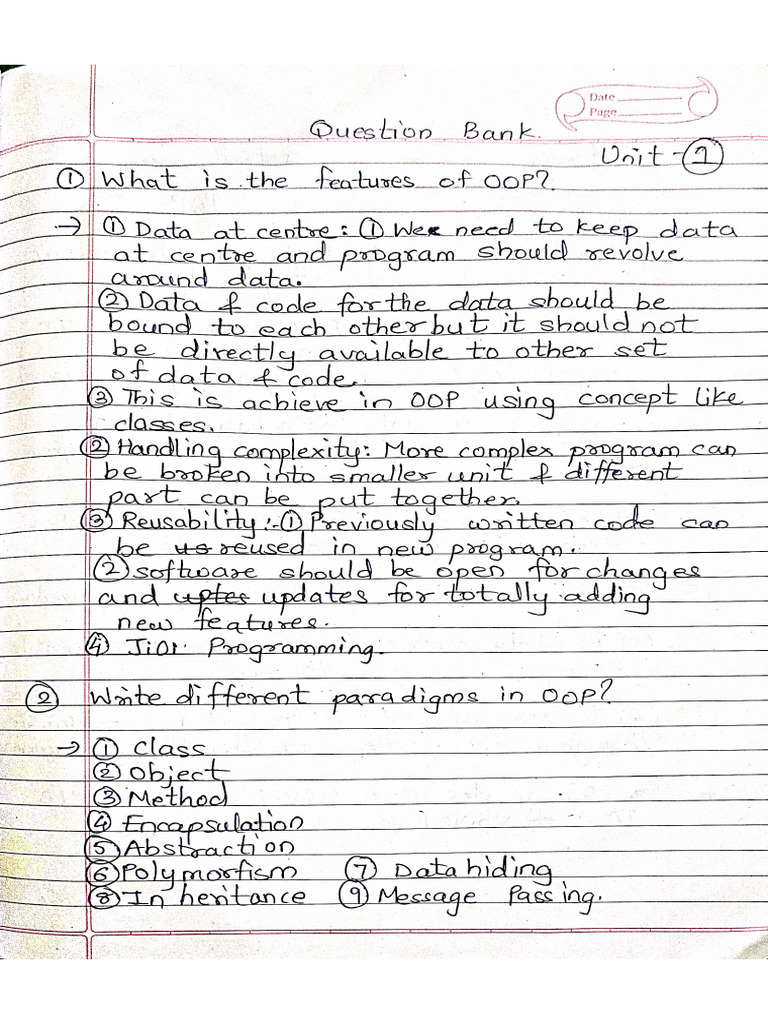 Date
Page
Question Bank.
Unit - ①
① What is the features of OOP?
→ ① Data at centre : ① We need to keep data
at centre and program should revolve
around data.
② Data & code for the data should be
bound to each other but it should not
be directly available to other set
of data & code.
③ This is achieve in OOP using concept like
classes.
② Handling complexity: More complex program can
be broken into smaller unit & different
part can be put together.
③ Reusability :- ① Previously written code can
be us reused in new program.
② software should be open for changes
and uptes updates for totally adding
new features.
④ Programming.
② Write different paradigms in OOP?
→ ① Class
② Object
③ Method
④ Encapsulation
⑤ Abstraction
⑥ Polymorfism ⑦ Data hiding
⑧ Inheritance ⑨ Message Passing.